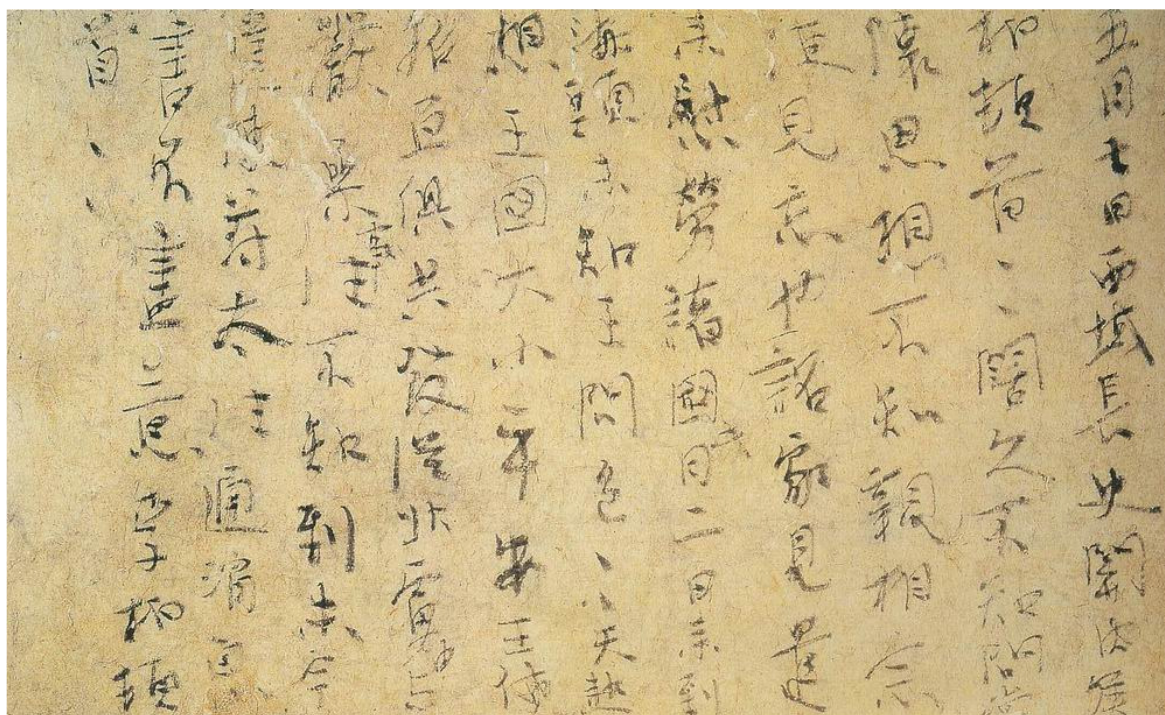 五月七日西域長史關內侯
柏頓首、闊久不知問常
懷思想不知親相念
便見忘也詔家見遣
來慰勞諸國此月二日來到
海頭未知王問邑、天熱
想王國大小平安王使
招亘俱共發從北虜中與
嚴參事往不知到未今
遣使苻太往通消息
書不盡意李柏頓
首、